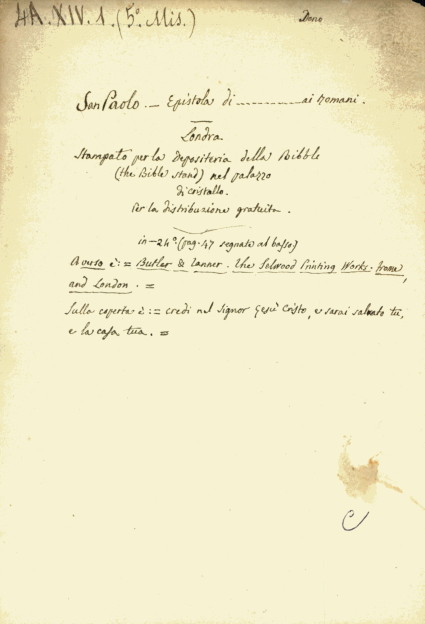 4A.XIV.1.(5º Mis.)
Dono
San Paolo. — Epistola di ———— ai Romani.
Londra
Stampato per la Depositeria della Bibble
(the Bible stand) nel palazzo
di cristallo.
Per la distribuzione gratuita.
in-24º (pag. 47 segnate al basso)
A verso è: = Butler & Tanner. The Selwood Printing Works. Frome,
and London. =
Sulla coperta è: = Credi nel Signor Gesù Cristo, e sarai salvato tu,
e la casa tua. =
C